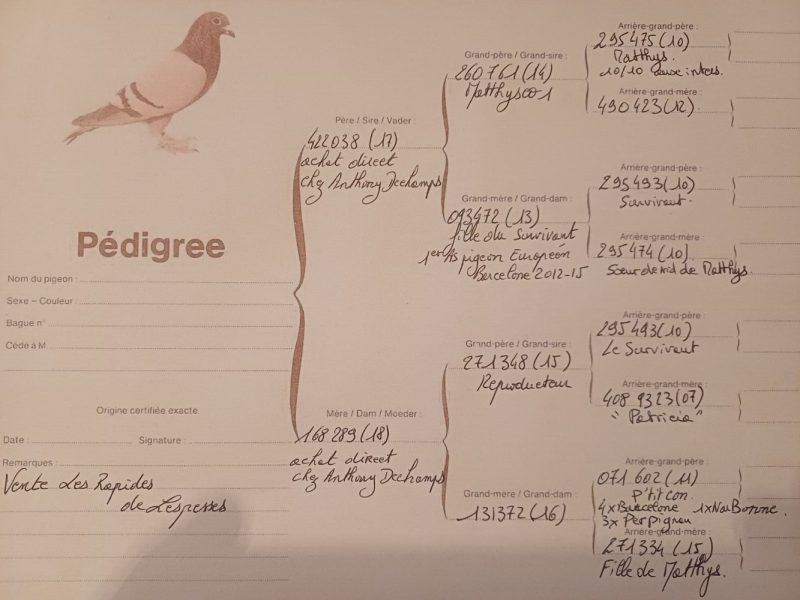 Pédigree
Nom du pigeon :
Sexe – Couleur :
Bague n°
Cédé à M.
Origine certifiée exacte
Date : Signature :
Remarques :
Vente Les Rapides
de Lespesses
Père / Sire / Vader :
422038 (17)
achat direct
chez Anthony Dechamps
Mère / Dam / Moeder :
168289 (18)
achat direct
chez Anthony Dechamps
Grand-père / Grand-sire :
260761 (14)
Matthysco1
Grand-mère / Grand-dam :
093472 (13)
fille du Survivant
1er As pigeon Européen
Barcelone 2012-15
Grand-père / Grand-sire :
271348 (15)
Reproducteur
Grand-mère / Grand-dam :
131372 (16)
Arrière-grand-père :
295475 (10)
Matthys.
10/10 aux inters.
Arrière-grand-mère :
490423 (12)
Arrière-grand-père :
295493 (10)
Survivant.
Arrière-grand-mère :
295474 (10)
Sœur de nid de Matthys.
Arrière-grand-père :
295493 (10)
Le Survivant
Arrière-grand-mère :
408 9323 (07)
"Patricia"
Arrière-grand-père :
071602 (11)
P'tit con.
4x Barcelone 1x Narbonne.
3x Perpignan
Arrière-grand-mère :
271334 (15)
Fille de Matthys.